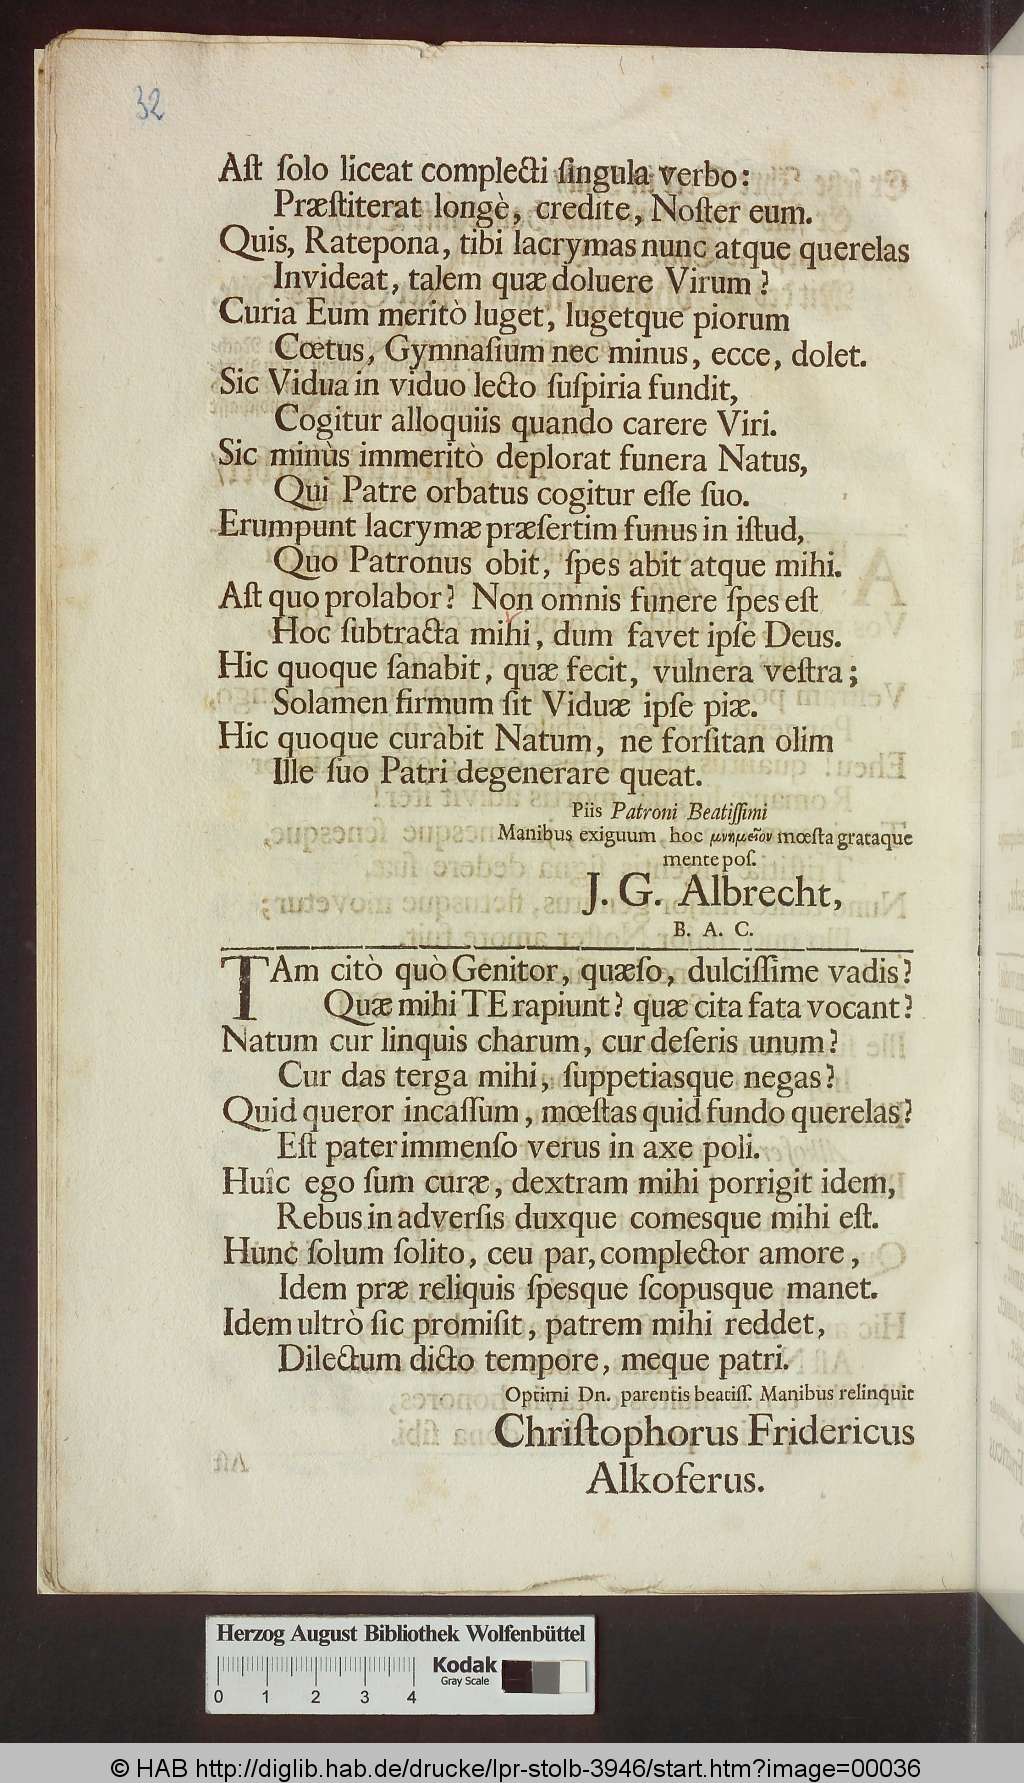 32
Aſt ſolo liceat complecti ſingula verbo:
Præſtiterat longè, credite, Noſter eum.
Quis, Ratepona, tibi lacrymas nunc atque querelas
Invideat, talem quæ doluere Virum?
Curia Eum meritò luget, lugetque piorum
Cœtus, Gymnaſium nec minus, ecce, dolet.
Sic Vidua in viduo lecto ſuſpiria fundit,
Cogitur alloquiis quando carere Viri.
Sic minùs immeritò deplorat funera Natus,
Qui Patre orbatus cogitur eſſe ſuo.
Erumpunt lacrymæ præſertim funus in iſtud,
Quo Patronus obit, ſpes abit atque mihi.
Aſt quo prolabor? Non omnis funere ſpes eſt
Hoc ſubtracta mihi, dum favet ipſe Deus.
Hic quoque ſanabit, quæ fecit, vulnera veſtra;
Solamen firmum ſit Viduæ ipſe piæ.
Hic quoque curabit Natum, ne forſitan olim
Ille ſuo Patri degenerare queat.
Piis Patroni Beatiſſimi
Manibus exiguum hoc μνημεῖον mœſta grataque
mente poſ.
J. G. Albrecht,
B. A. C.
TAm citò quò Genitor, quæſo, dulciſſime vadis?
Quæ mihi TE rapiunt? quæ cita fata vocant?
Natum cur linquis charum, cur deſeris unum?
Cur das terga mihi, ſuppetiasque negas?
Quid queror incaſſum, mœſtas quid fundo querelas?
Eſt pater immenſo verus in axe poli.
Huic ego ſum curæ, dextram mihi porrigit idem,
Rebus in adverſis duxque comesque mihi eſt.
Hunc ſolum ſolito, ceu par, complector amore,
Idem præ reliquis ſpesque ſcopusque manet.
Idem ultrò ſic promiſit, patrem mihi reddet,
Dilectum dicto tempore, meque patri.
Optimi Dn. parentis beatiſſ. Manibus relinquit
Chriſtophorus Fridericus
Alkoferus.
Herzog August Bibliothek Wolfenbüttel
Kodak
Gray Scale
0 1 2 3 4
© HAB http://diglib.hab.de/drucke/lpr-stolb-3946/start.htm?image=00036